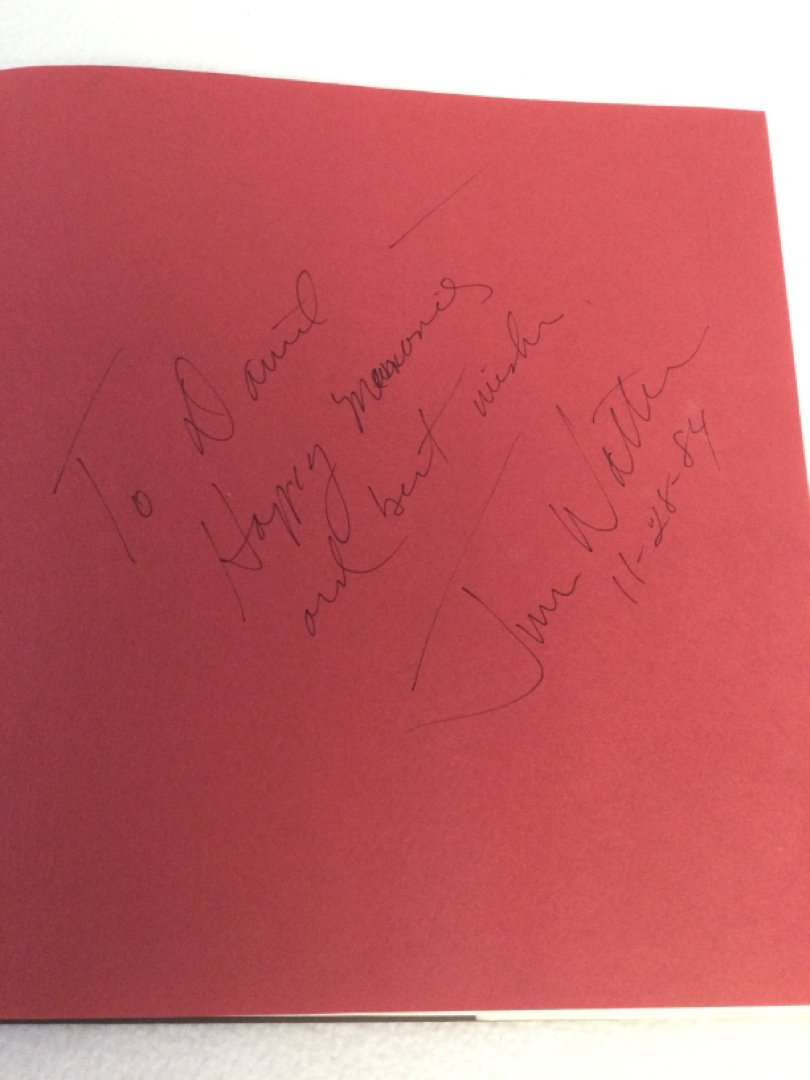 To Daniel —
Happy memories
and best wishes.
Jim
11-28-84